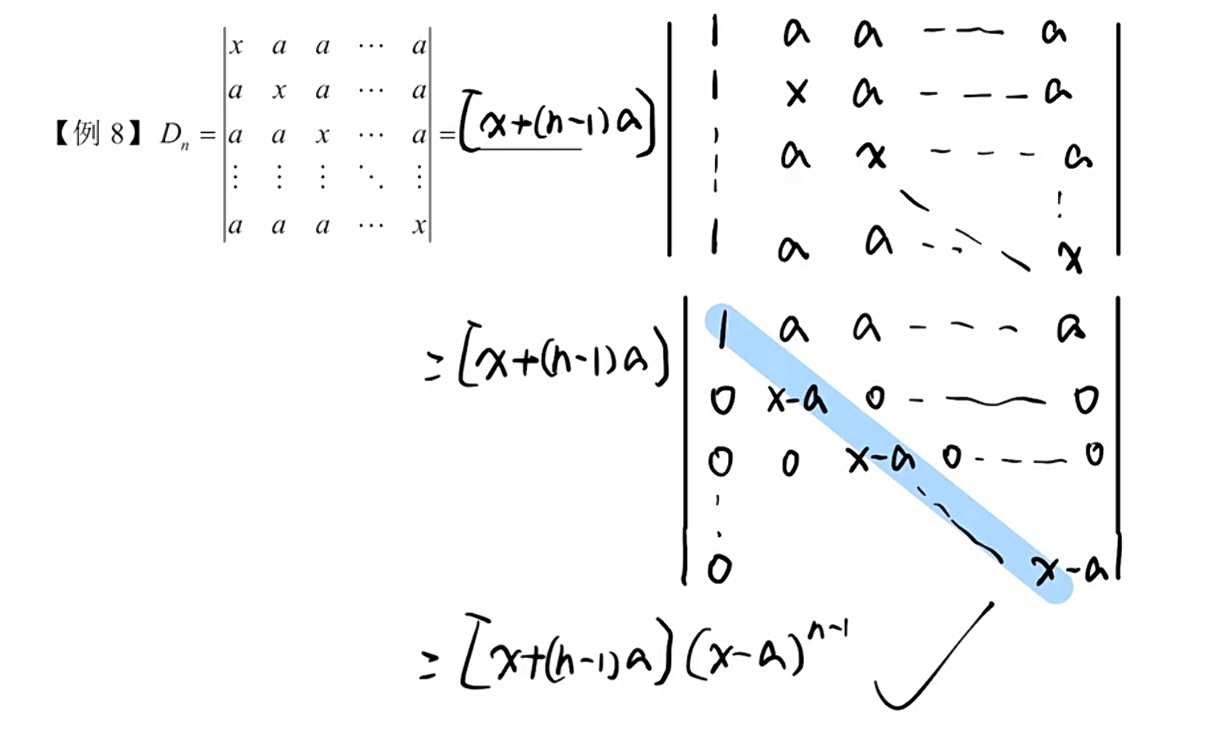 【例 8】 Dₙ = |x a a ⋯ a| = [x+(n-1)a] |1 a a --- a|
|a x a ⋯ a| |1 x a ---- a|
|a a x ⋯ a| |⋮ a x --- a|
|⋮ ⋮ ⋮ ⋱ ⋮| |⋱ ⋮|
|a a a ⋯ x| |1 a a --- x|
= [x+(n-1)a] |1 a a --- a|
|0 x-a 0 --- 0|
|0 0 x-a 0 ---- 0|
|⋮ ⋱|
|0 x-a|
= [x+(n-1)a](x-a)ⁿ⁻¹ ✓